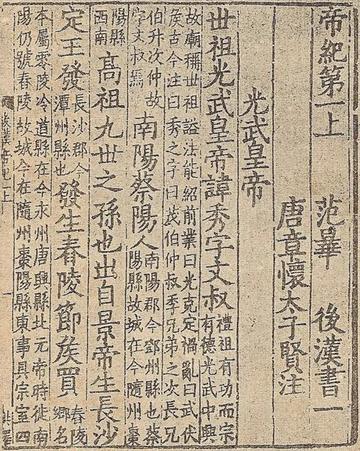 帝紀第一上 范曄 後漢書一
唐章懷太子賢注
光武皇帝
世祖光武皇帝諱秀字文叔 禮祖有功而宗
有德光武中興
故廟稱世祖謚法能紹前業曰光克定禍亂曰武伏
矦古今注曰秀之字曰茂伯仲叔季兄弟之次長兄
伯升次仲故
字文叔焉 南陽蔡陽人 南陽郡今鄧州縣也蔡
陽縣故城在今隨州棗
陽縣
西南 高祖九世之孫也出自景帝生長沙
定王發 長沙郡今
潭州縣也 發生舂陵節矦買 舂陵
鄉名
本屬零陵泠道縣在今永州唐興縣北元帝時徙南
陽仍號舂陵故城今在隨州棗陽縣東事具宗室四